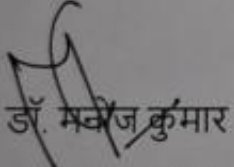 डॉ. मनोज कुमार